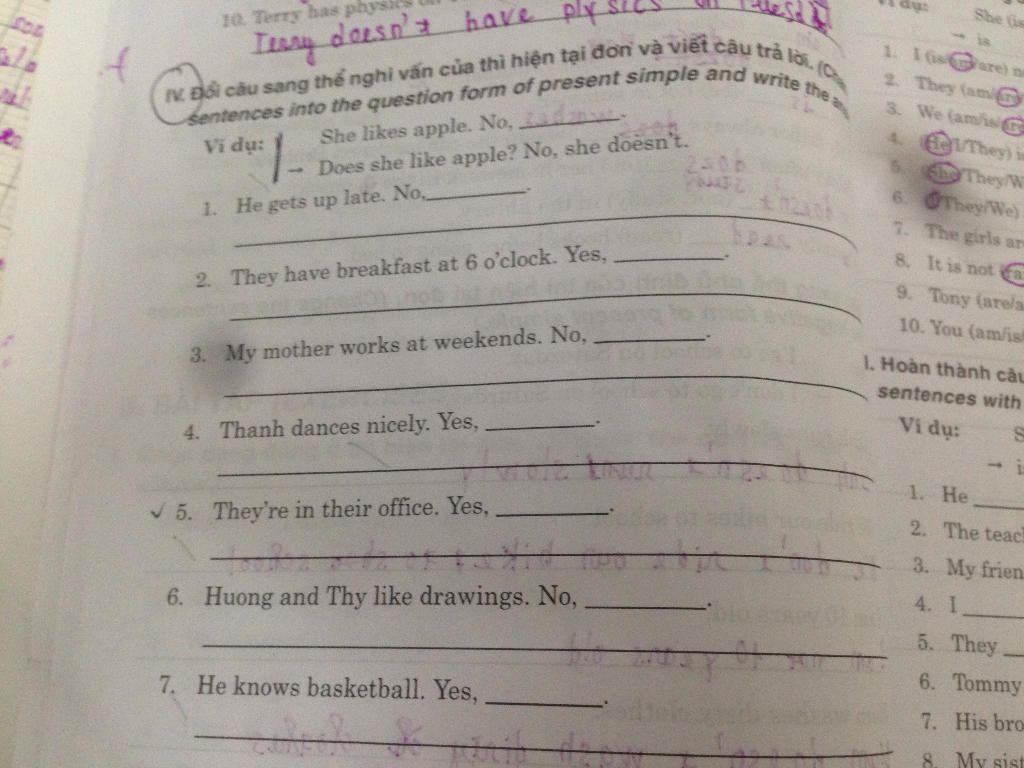 10. Terry has physics on
Terry doesn't have plysics on
IV. Đổi câu sang thể nghi vấn của thì hiện tại đơn và viết câu trả lời.
sentences into the question form of present simple and write the
Ví dụ: She likes apple. No, ________.
→ Does she like apple? No, she doesn't.
1. He gets up late. No, ________.
2. They have breakfast at 6 o'clock. Yes, ________.
3. My mother works at weekends. No, ________.
4. Thanh dances nicely. Yes, ________.
5. They're in their office. Yes, ________.
6. Huong and Thy like drawings. No, ________.
7. He knows basketball. Yes, ________.
She (is
→ is
1. I (is/am/are)
2. They (am/
3. We (am/is/
4. He/I/They)
5. She/They/W
6. They/We)
7. The girls ar
8. It is not
9. Tony (are/a
10. You (am/is
I. Hoàn thành câu
sentences with
Ví dụ: S
→ i
1. He
2. The teac
3. My frien
4. I
5. They
6. Tommy
7. His bro
8. My sist